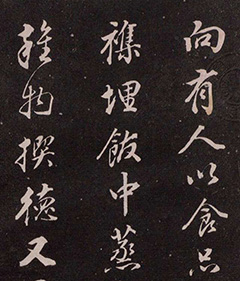 向有人以食品
襍埋飯中蒸
雜物撰德又